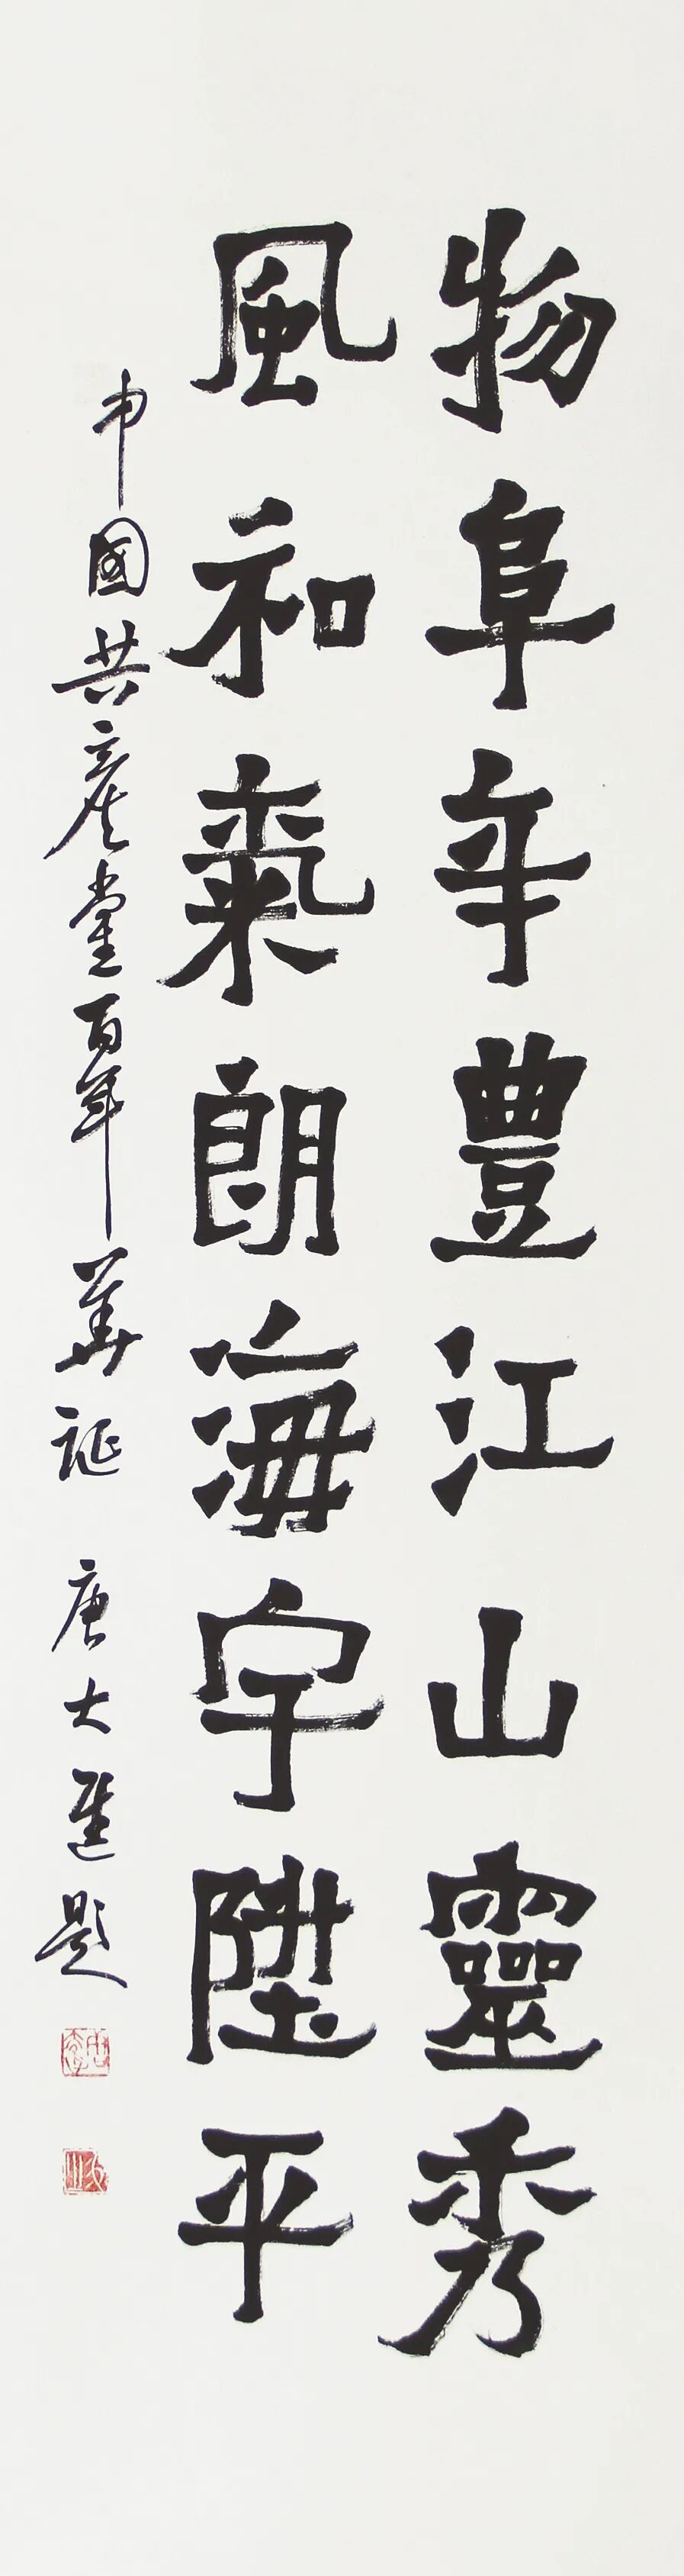 物阜年豐江山靈秀
風和氣朗海宇陞平
中國共產黨百年華誕 唐大進題